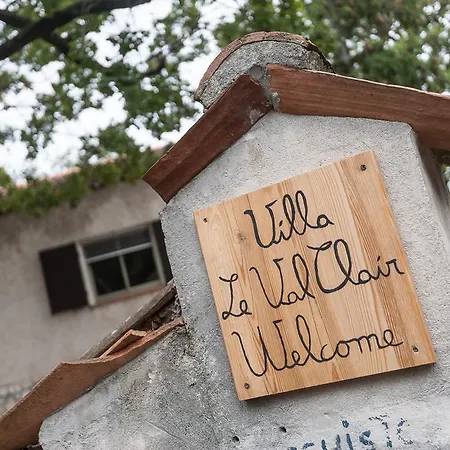 Villa
Le Val Clair
Welcome